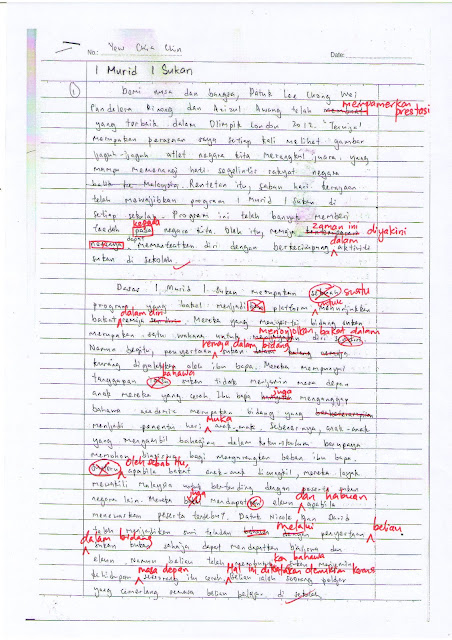 No: Yew Chia Chin Date:
1 Murid 1 Sukan
① Demi nusa dan bangsa, Datuk Lee Chong Wei
mempamerkan
Pandelela Rinong dan Azizul Awang telah prestasi
yang terbaik dalam Olimpik London 2012. "Teruja"
merupakan perasaan saya setiap kali melihat gambar
jaguh-jaguh atlet negara kita merangkul juara, yang
mampu memenangi hati segelintir rakyat negara
Malaysia. Rentetan itu, saban hari kerajaan
telah mewajibkan program 1 Murid 1 Sukan di
setiap sekolah. Program ini telah banyak memberi
kepada zaman ini
faedah pada negara kita. Oleh itu, remaja diyakini
dapat dalam
memanfaatkan diri dengan berkecimpung aktiviti
sukan di sekolah.
Dasar 1 Murid 1 Sukan merupakan sebuah suatu
untuk
program yang bakal menjadi platform menunjukkan
dalam diri
bakat remaja. Mereka yang menyertai bidang sukan
menonjolkan bakat dalam
merupakan satu wahana untuk diri
remaja dalam bidang
Namun begitu, penyertaan sukan
kurang oleh ibu bapa. Mereka mempunyai
bahawa
tanggapan sukan tidak menjamin masa depan
juga
anak mereka yang cerah. Ibu bapa menganggap
bahawa akademik merupakan bidang yang
muka
menjadi penentu hari anak-anak. Sebenarnya, anak-anak
yang mengambil bahagian dalam kokurikulum berupaya
memohon biasiswa bagi mengurangkan beban ibu bapa.
Oleh sebab itu,
apabila bakat anak-anak dicungkil, mereka layak
mewakili Malaysia untuk bertanding dengan peserta sukan
juga dan habuan
negara lain. Mereka mendapat elaun apabila
menewaskan peserta tersebut. Datuk Nicole Ann David
melalui beliau
telah menjadikan suri teladan penyertaan
dalam bidang
sukan bukan sahaja dapat mendapatkan biasiswa dan
kan bahawa
elaun. Namun beliau telah sukan menjamin
masa depan Hal ini dikatakan demikian kerana
kehidupan seseorang itu cerah beliau ialah seorang pelajar
yang cemerlang semasa beliau belajar di sekolah.